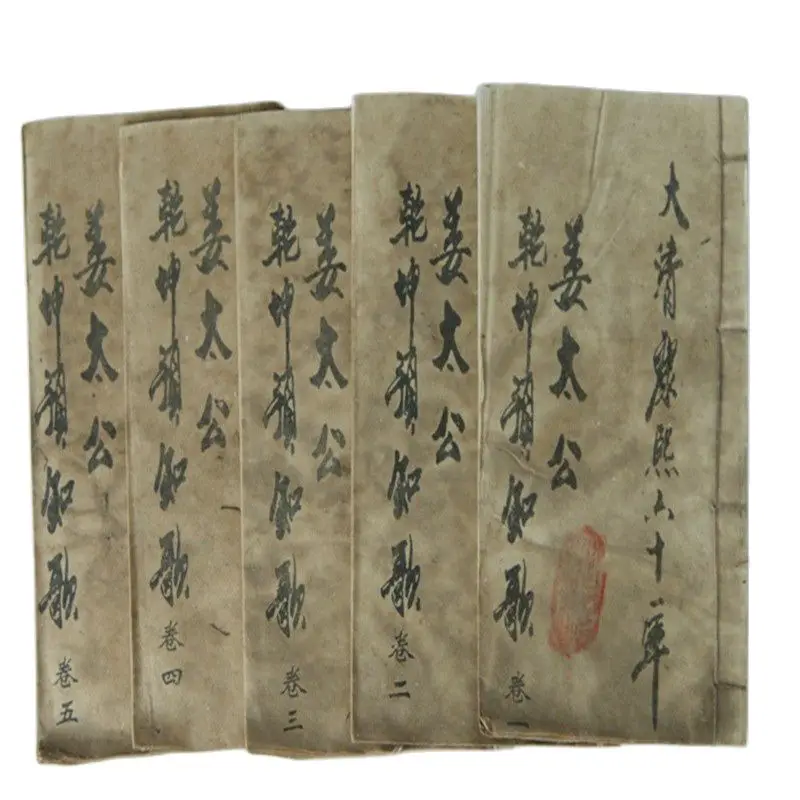 大清康熙六十一年
姜太公
乾坤預知歌
卷一
姜太公
乾坤預知歌
卷二
姜太公
乾坤預知歌
卷三
姜太公
乾坤預知歌
卷四
姜太公
乾坤預知歌
卷五